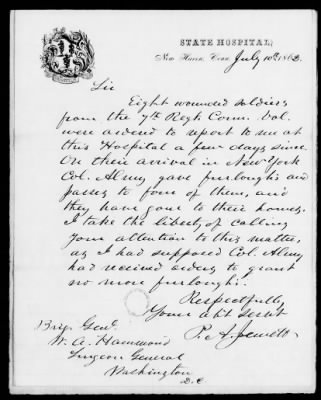 STATE HOSPITAL,
New Haven, Conn. July 10th, 1862.
Sir
Eight wounded soldiers
from the 7th Regt Conn. Vol.
were ordered to report to me at
this Hospital a few days since.
On their arrival in New York
Col. Almy gave furloughs and
passes to four of them, and
they have gone to their homes.
I take the liberty of calling
your attention to this matter,
as I had supposed Col. Almy
had received orders to grant
no more furloughs.
Respectfully
Your obt servt
P. A. Jewett
Brig. Genl.
W. A. Hammond
Surgeon General
Washington
D.C